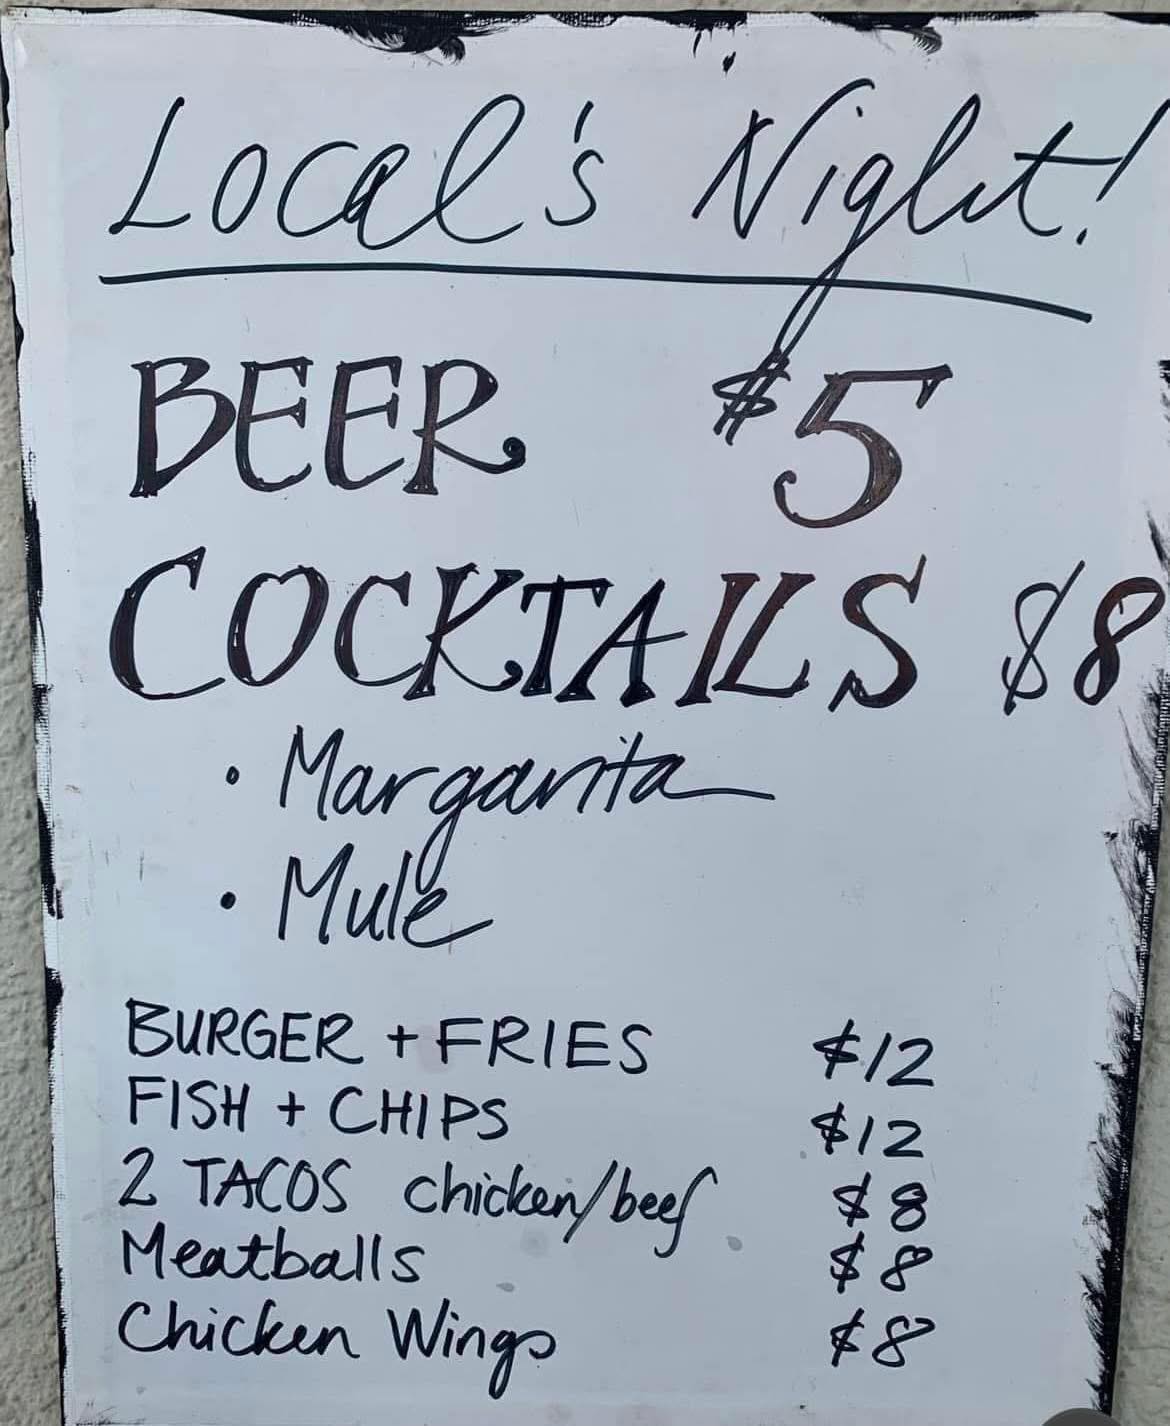 Local's Night!
BEER $5
COCKTAILS $8
• Margarita
• Mule
BURGER + FRIES $12
FISH + CHIPS $12
2 TACOS chicken/beef $8
Meatballs $8
Chicken Wings $8